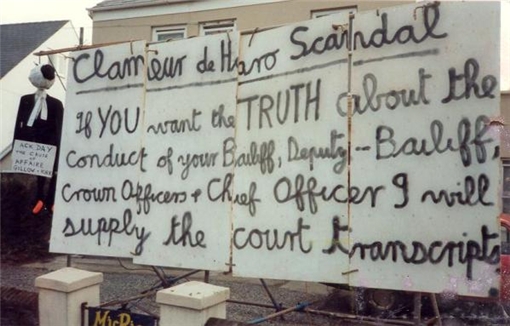 Clameur de Haro Scandal
If YOU want the TRUTH about the
conduct of your Bailiff, Deputy-Bailiff,
Crown Officers + Chief Officer I will
supply the court transcripts.
ACK DAY
THE CAUSE OF
AFFAIRE
GILLOW - KIRK
McP